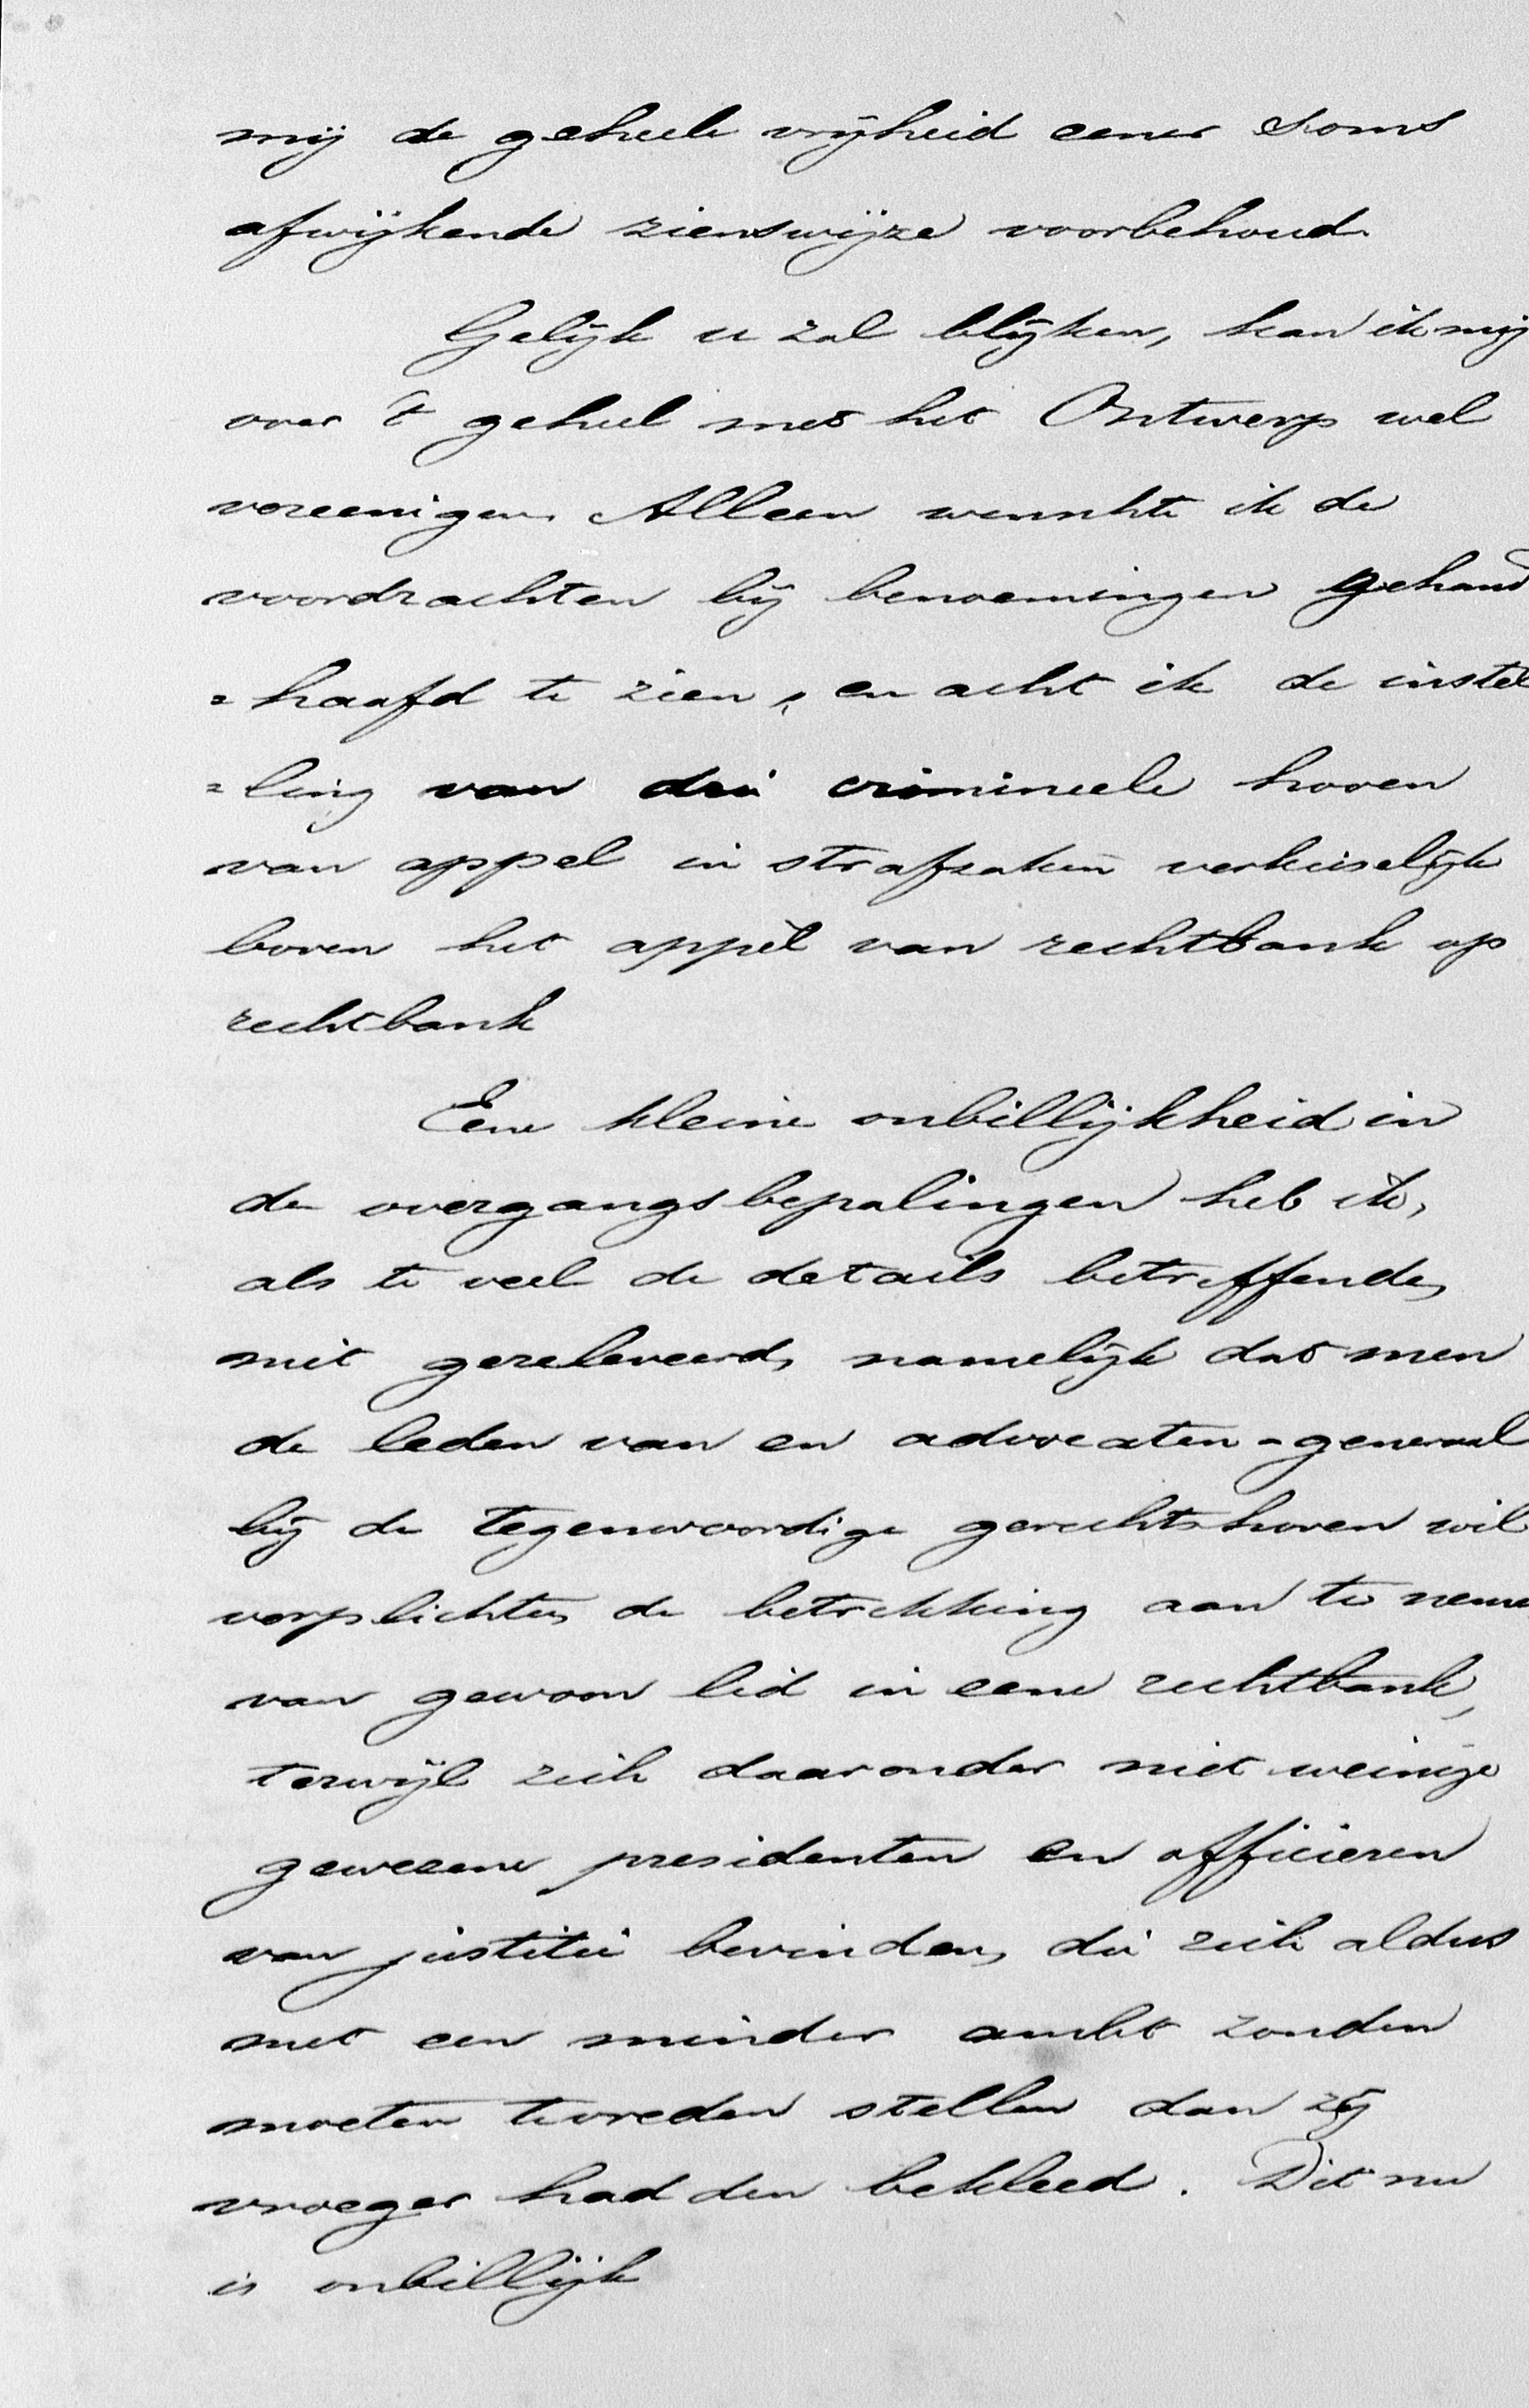 mij de geheele vrijheid eener soms
afwijkende zienswijze voorbehoud.
Gelijk u zal blijken, kan ik mij
over 't geheel met het Ontwerp wel
vereenigen. Alleen wenschte ik de
voordrachten bij benoemingen gehand
=haafd te zien, en acht ik de instel
=ling van drie crimineele hoven
van appel in strafzaken verkieselijk
boven het appèl van rechtbank op
rechtbank
Eene kleine onbillijkheid in
de overgangsbepalingen heb ik,
als te veel de details betreffende,
niet gereleveerd, namelijk dat men
de leden van en advocaten-generaal
bij de tegenwoordige gerechtshoven wil
verplichten de betrekking aan te neme
van gewoon lid in eene rechtbank,
terwijl zich daaronder niet weinige
geweezene presidenten en officieren
van justitie bevinden, die zich aldus
met een minder ambt zouden
moeten tevreden stellen dan zij
vroeger hadden bekleed. Dit nu
is onbillijk